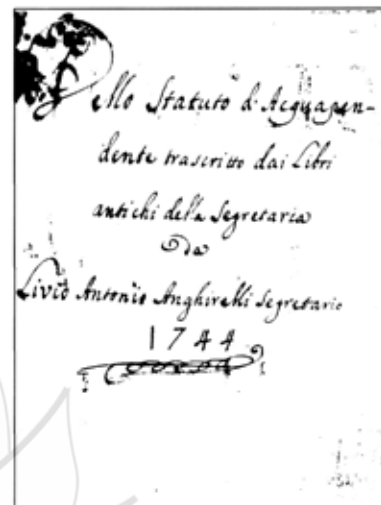 Dello Statuto d'Acquapen-
dente trascritto dai Libri
antichi della Segretaria
Da
Livio Antonio Anghirelli Segretario
1744